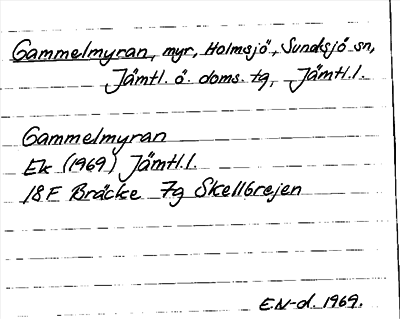 Gammelmyran, myr, Holmsjö, Sundsjö sn,
Jämtl. ö. doms. tg, Jämtl.l.
Gammelmyran
Ek (1969) Jämtl.l.
18F Bräcke 7g Skellbrejen
E.N-d. 1969.